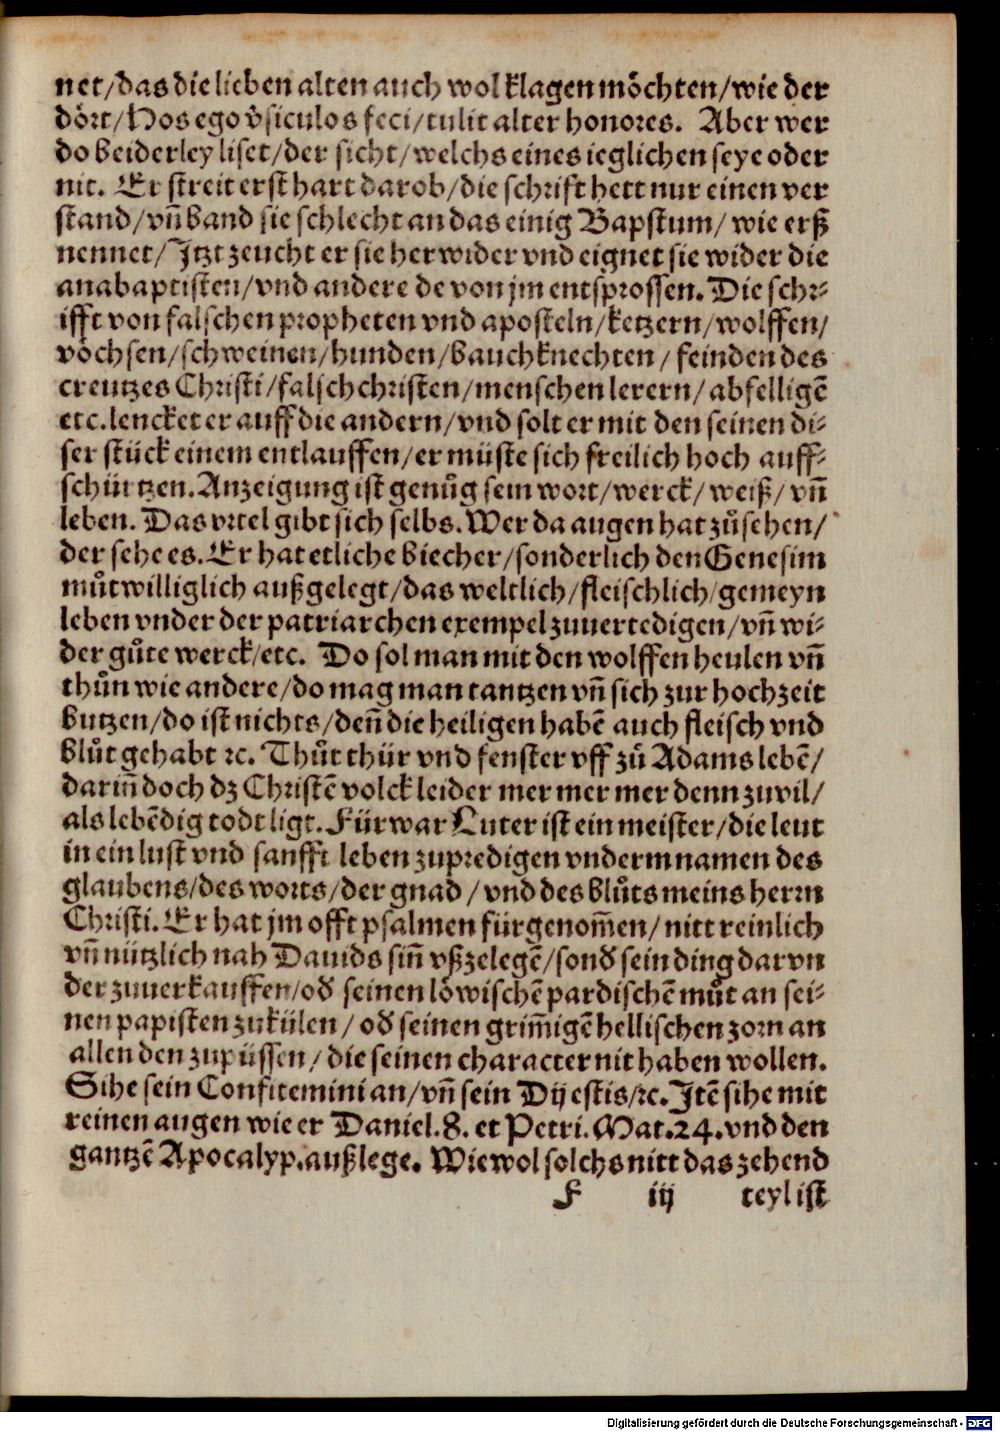 net/das die lieben alten auch wol klagen möchten/wie der
dört/Hos ego v̊siculos feci/tulit alter honores. Aber wer
do beiderley liset/der sicht/welchs eines ieglichen seye oder
nit. Er streit erst hart darob/die schrifft hett nur einen ver
stand/vñ band sie schlecht an das einig Bapstum/ wie erß
nennet/Itzt zeucht er sie herwider vnd eignet sie wider die
anabaptisten/vnd andere de von jm entsprossen. Die schr⸗
ifft von falschen propheten vnd aposteln/ketzern/wolffen/
vöchsen/schweinen/hunden/bauchknechten/ feinden des
creutzes Christi/falschchristen/menschen lerern/ abfelligẽ
etc. lencket er auff die andern/vnd solt er mit den seinen di⸗
ser stück einem entlauffen/er müste sich freilich hoch auff⸗
schürtzen. Anzeigung ist genůg sein wort/werck/ weiß/ vñ
leben. Das vrtel gibt sich selbs. Wer da augen hat zůsehen/
der sehe es. Er hat etliche biecher/sonderlich den Genesim
můtwilliglich außgelegt/das weltlich/fleischlich/gemeyn
leben vnder der patriarchen exempel zuuertedigen/vñ wi⸗
der gůte werck/etc. Do sol man mit den wolffen heulen vñ
thůn wie andere/do mag man tantzen vñ sich zur hochzeit
butzen/do ist nichts/deñ die heiligen habẽ auch fleisch vnd
blůt gehabt ꝛc. Thůt thür vnd fenster vff zů Adams lebẽ/
dariñ doch dz Christẽ volck leider mer mer mer denn zuvil/
als lebẽdig todt ligt. Fürwar Luter ist ein meister/die leut
in ein lust vnd sanfft leben zupredigen vnderm namen des
glaubens/des worts/der gnad / vnd des blůts meins herrn
Christi. Er hat jm offt psalmen fürgenom̃en/ nitt reinlich
vñ nützlich nah Dauids siñ vßzelegẽ/sond̕ sein ding darvn
der zuuerkauffen/od̕ seinen löwischẽ pardischẽ můt an sei⸗
nen papisten zukülen/ od̕ seinen grim̃igẽ hellischen zorn an
allen den zupüssen/ die seinen character nit haben wollen.
Sihe sein Confitemini an/vñ sein Dij estis/ꝛc. Itẽ sihe mit
reinen augen wie er Daniel.8. et Petri. Mat.24. vnd den
gantzẽ Apocalyp. außlege. Wiewol solchs nitt das zehend
F iij teyl ist
Digitalisierung gefördert durch die Deutsche Forschungsgemeinschaft - DFG